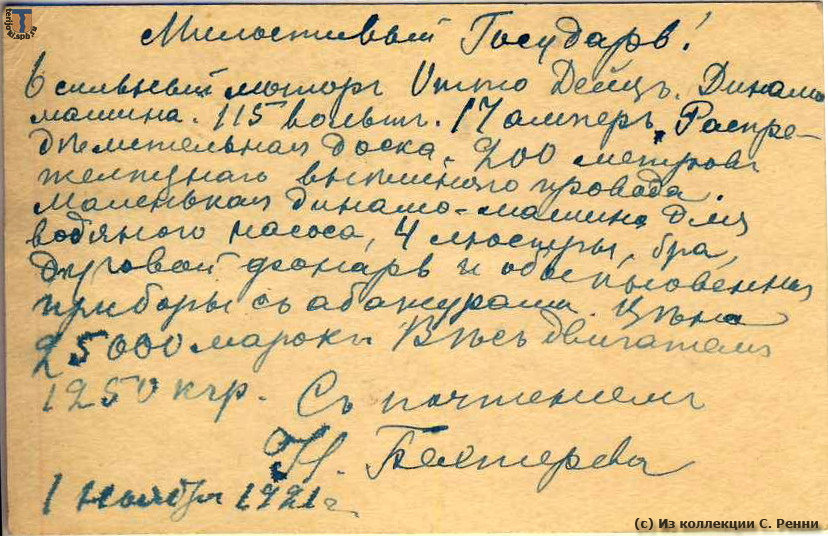 terijoki.spb.ru
Милостивый Государь!
6 сильный моторъ Отто Дейцъ. Динамо
машина. 115 вольтъ. 17 амперъ. Распре-
дѣлительная доска. 200 метровъ
желѣзнаго внѣшняго провода.
Маленькая динамо-машина для
водяного насоса, 4 люстры, бра,
дуговой фонарь и обыкновенные
приборы съ абажурами. Цѣна
25 000 марокъ Вѣсъ двигателя
1250 кгр. Съ почтеніемъ
Н. Бехтерева
1 Ноября 1921 г.
(c) Из коллекции С. Ренни